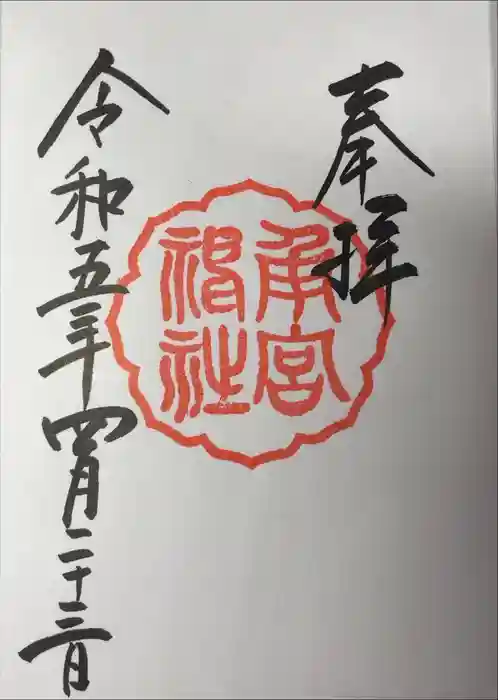 奉拝
角宮
神社
令和五年四月二十三日